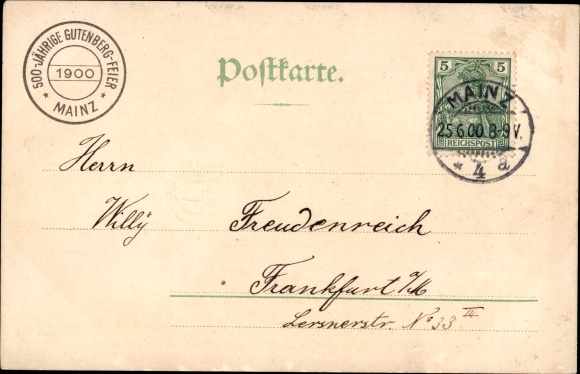 500-JÄHRIGE GUTENBERG-FEIER
1900
* MAINZ *
Postkarte.
5 5
REICHSPOST
MAINZ
25.6.00.8-9V.
* 4 a
Herrn
Willÿ Freudenreich
Frankfurt a/M
Lersnerstr. No 33 II